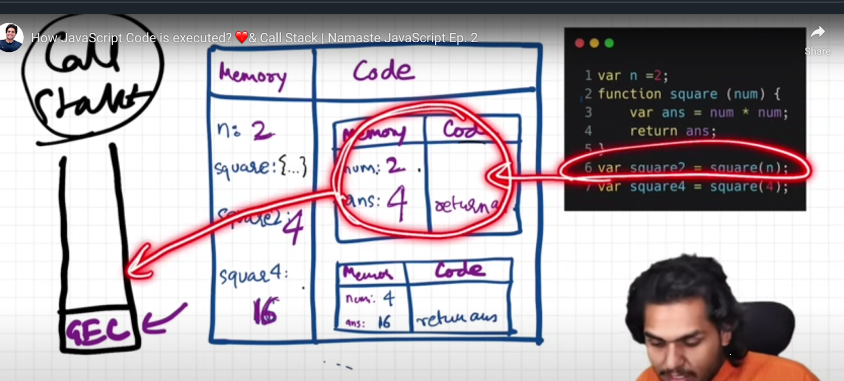 How JavaScript Code is executed? ❤️& Call Stack | Namaste JavaScript Ep. 2
Share
Call
Stack
GEC
Memory
Code
n: 2
square:{...}
square2:
4
squar4:
16
Memory
Cod
num: 2
ans: 4
return a
Memor
Code
num: 4
ans: 16
return ans
...
1 var n =2;
2 function square (num) {
3 var ans = num * num;
4 return ans;
5 }
6 var square2 = square(n);
7 var square4 = square(4);